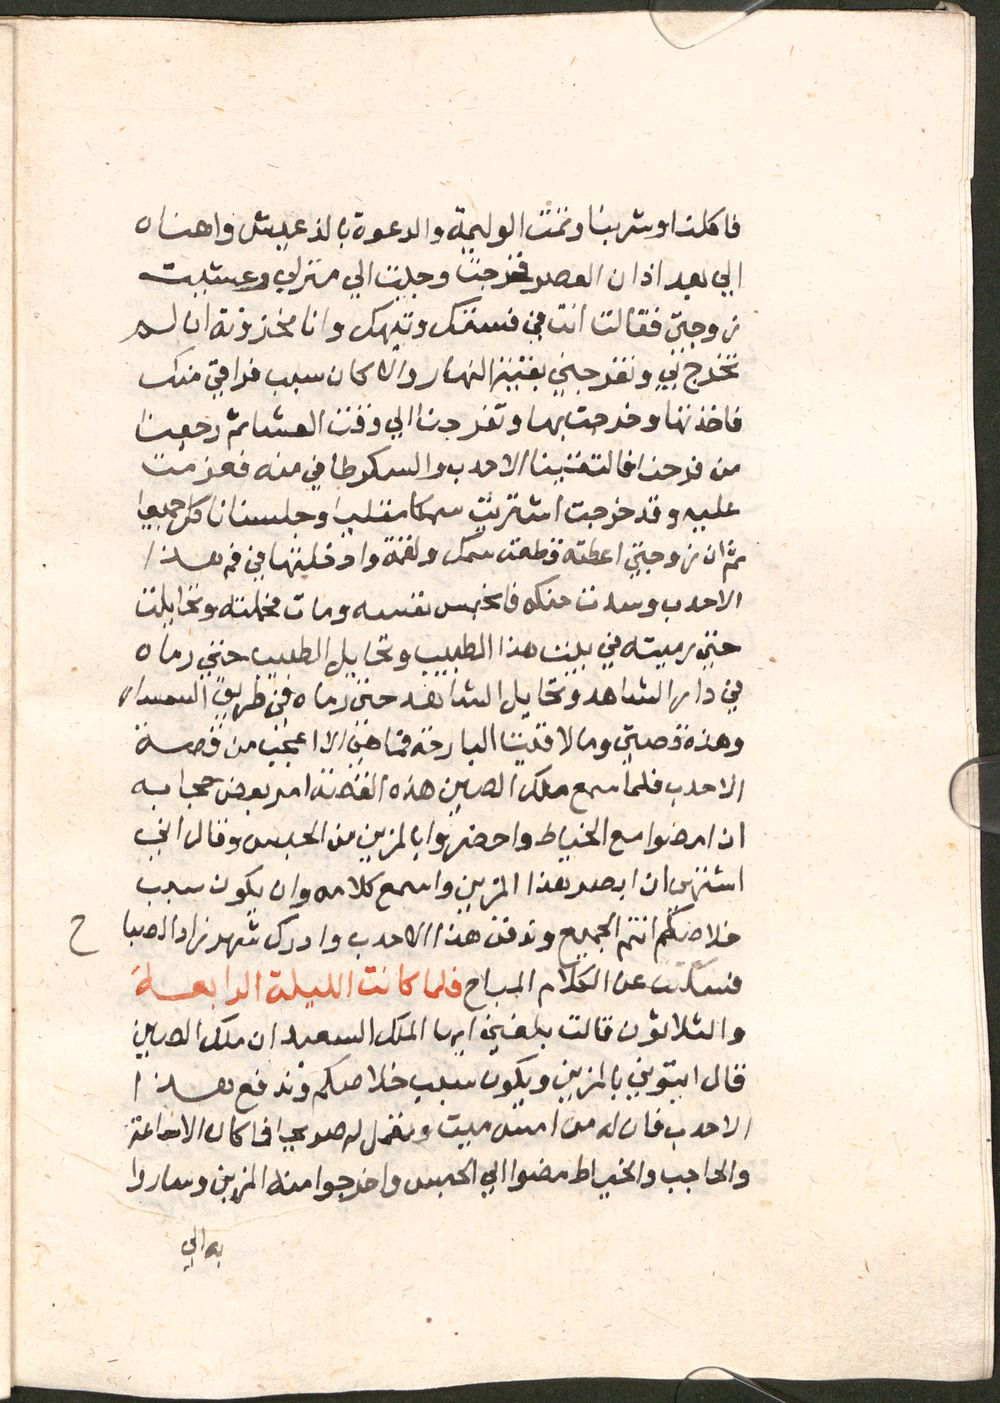 فاكلنا وشربنا وتمت الوليمة والدعوة بالذ عيش واهناه
الي بعد اذان العصر فخرجنا وجيت الي منزلي وعشيت
زوجتي فقالت انت في فستقك وتهتك وانا مخزونة ان لم
تخرج بي وتفرجني بقية النهار والا كان سبب فراقي منك
فاخذتها وخرجت بها وتفرجنا الي وقت العشا ثم رجعنا
من فرحنا فالتقينا الاحدب والسكر طافي منه فعزمت
عليه وقد خرجت اشتريت سمكا مقليا وجلسنا ناكل جميعا
ثم ان زوجتي اعطته قطعت سمك ولقمة وادخلتها في فم هذا
الاحدب وسدت حنكه فانحبس نفسه ومات فحملته وتحايلت
حتي رميته في بيت هذا الطبيب وتحايل الطبيب حتي رماه
في دار الشاهد وتحايل الشاهد حتي رماه في طريق السمسار
وهذه قصتي وما لاقيت البارحة فما هي الا اعجب من قصة
الاحدب فلما سمع ملك الصين هذه القصة امر بعض حجابه
ان امضوا مع الخياط واحضروا بالمزين من الحبس وقال اني
اشتهي ان ابصر هذا المزين واسمع كلامه وان يكون سبب
خلاصكم انتم الجميع وندفن هذا الاحدب وادرك شهرزاد الصبا ح
فسكتت عن الكلام المباح فلما كانت الليلة الرابعة
والثلاثون قالت بلغني ايها الملك السعيد ان ملك الصين
قال ايتوني بالمزين ويكون سبب خلاصكم وندفع هذا
الاحدب فان له من امس ميت ونعمل له ضريحا فما كان الا ساعة
والحاجب والخياط مضوا الي الحبس واخرجوا منه المزين وساروا
به الي